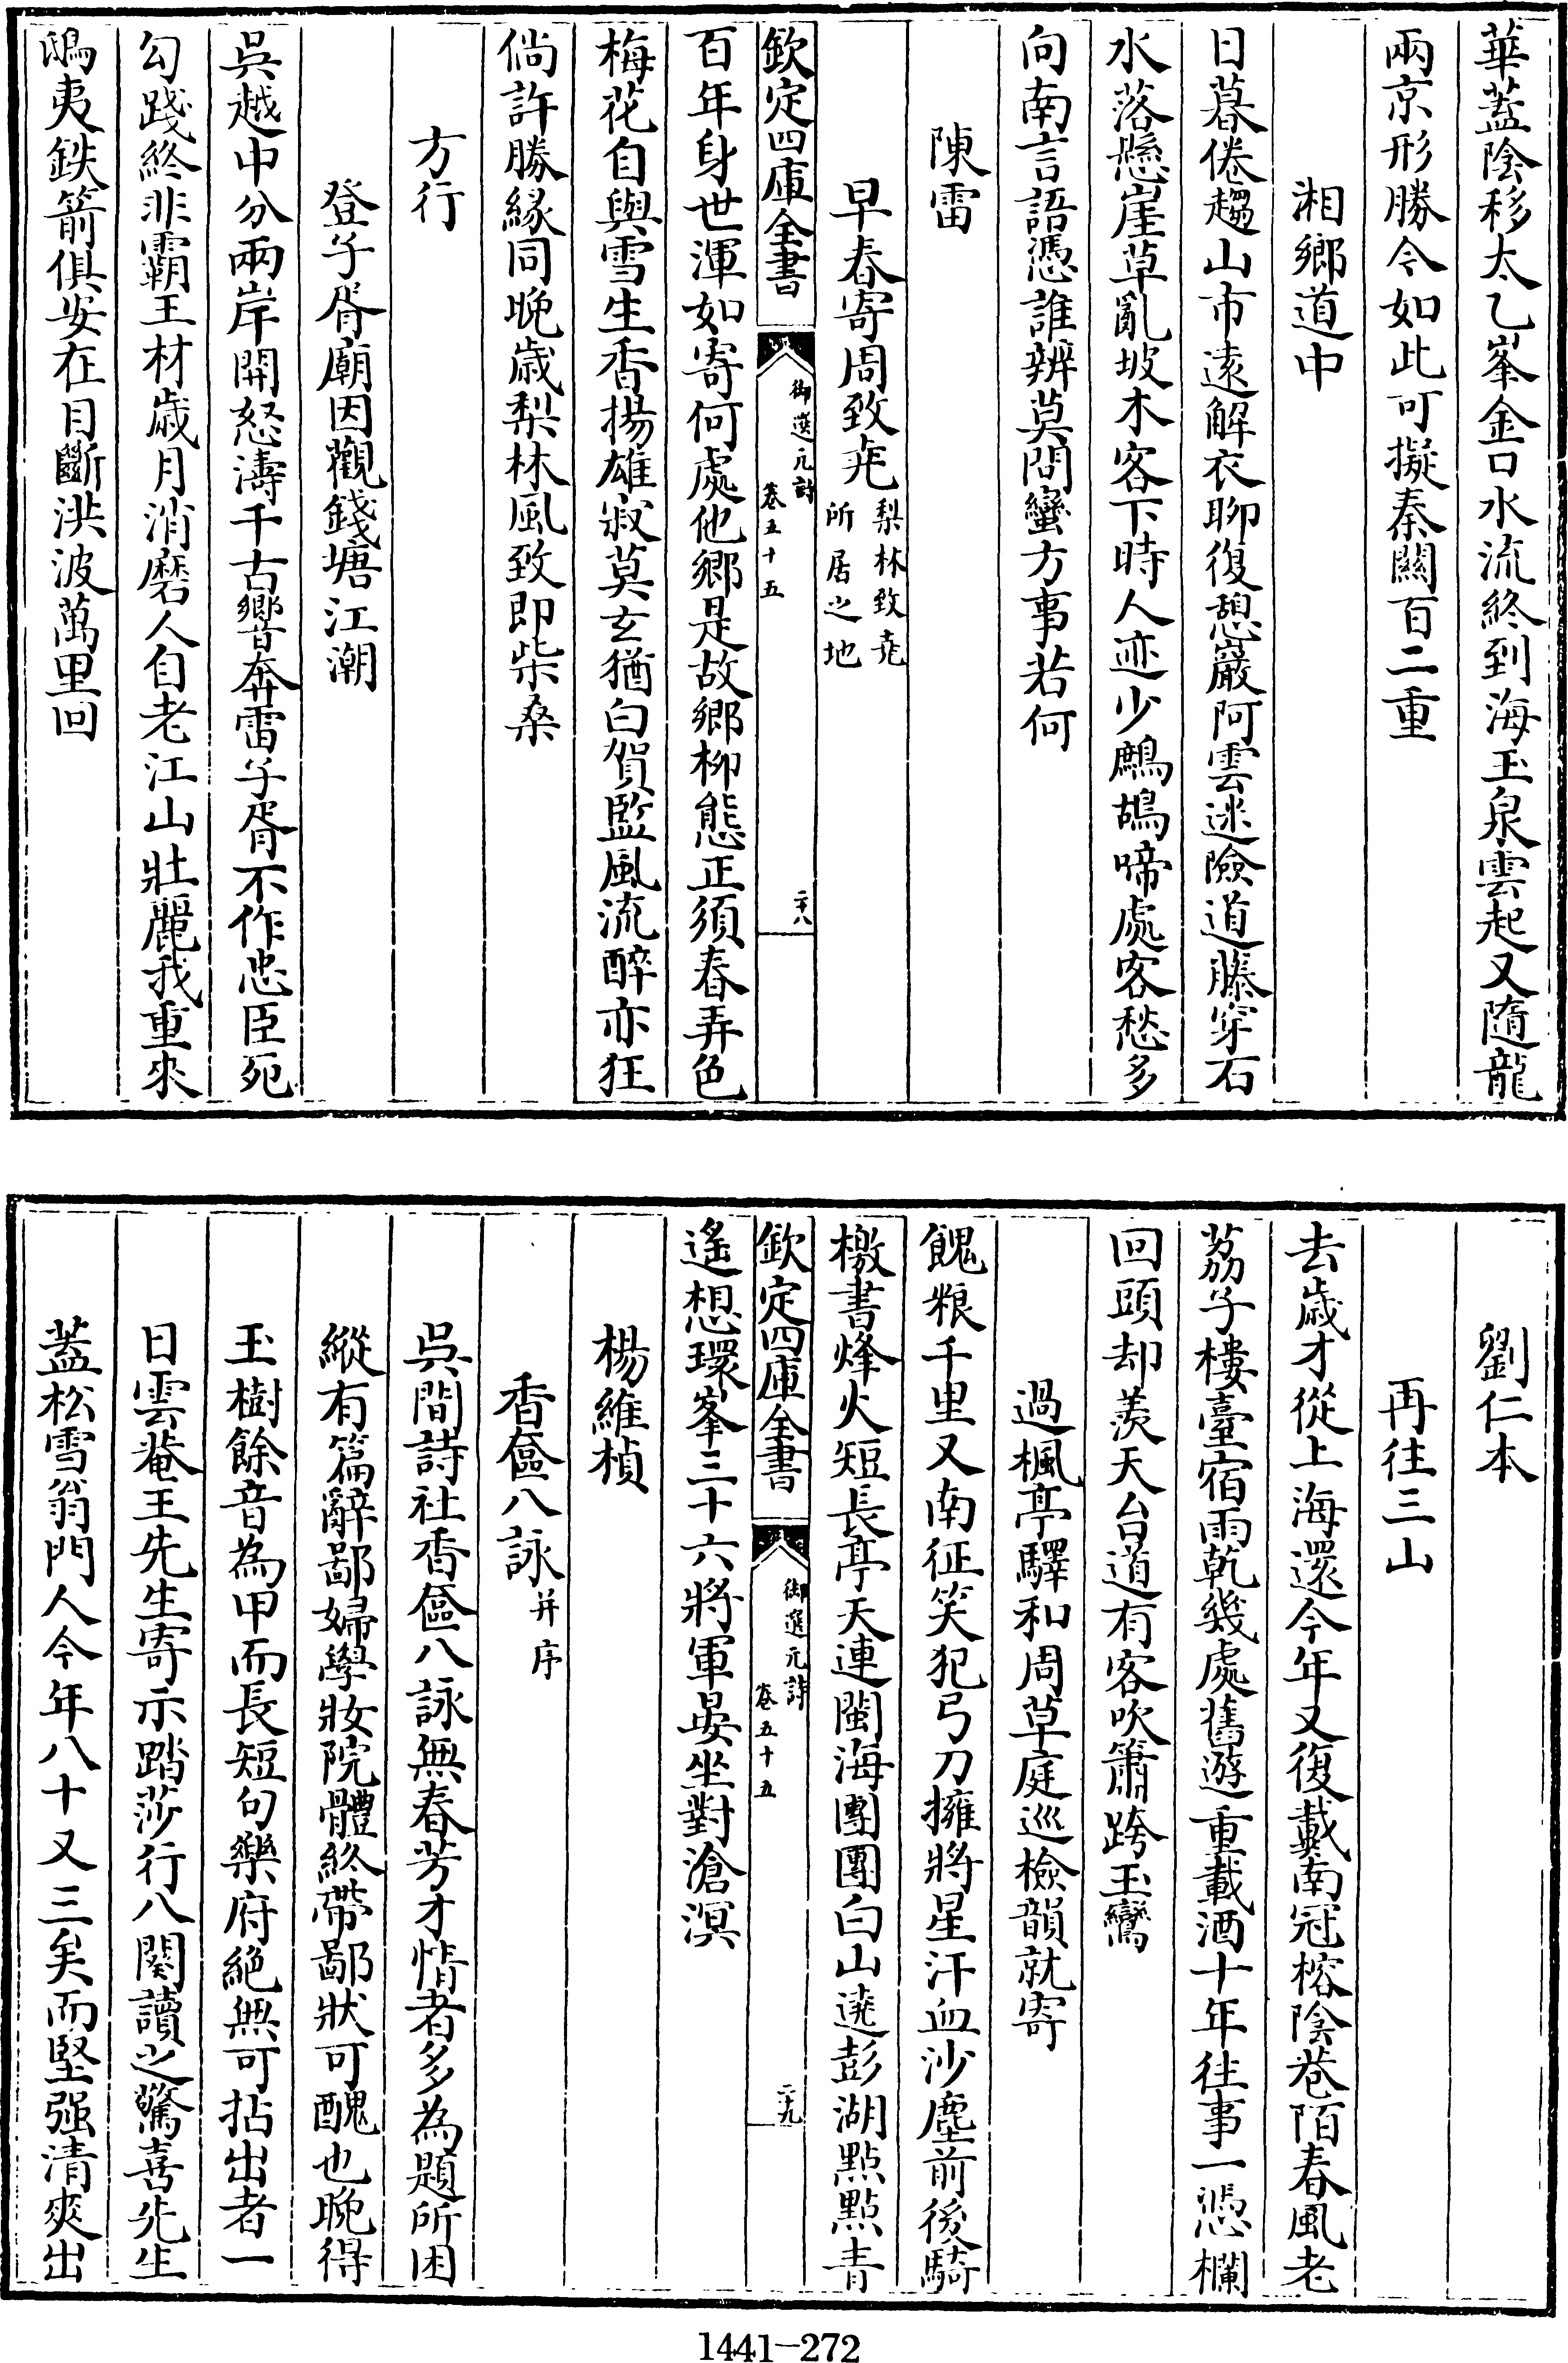 華蓋陰移太乙峯金口水流終到海玉泉雲起又隨龍
兩京形勝今如此可擬秦關百二重
湘鄉道中
日暮倦趨山市遠解衣聊復憩巖阿雲迷險道藤穿石
水落懸崖草亂坡木客下時人迹少鷓鴣啼處客愁多
向南言語憑誰辨莫問蠻方事若何
陳雷
早春寄周致堯梨林致堯
所居之地
欽定四庫全書
御選元詩
卷五十五
二十八
百年身世渾如寄何處他鄉是故鄉柳態正須春弄色
梅花自與雪生香揚雄寂莫玄猶白賀監風流醉亦狂
倘許勝緣同晚歲梨林風致即柴桑
方行
登子胥廟因觀錢塘江潮
吳越中分兩岸開怒濤千古響奔雷子胥不作忠臣死
勾踐終非霸王材歲月消磨人自老江山壯麗我重來
鴟夷鉄箭俱安在目斷洪波萬里回
劉仁本
再往三山
去歲才從上海還今年又復戴南冠榕陰巷陌春風老
荔子樓臺宿雨乾幾處舊遊重載酒十年往事一憑欄
回頭却羨天台道有客吹簫跨玉鸞
過楓亭驛和周草庭巡檢韻就寄
餽粮千里又南征笑犯弓刀擁將星汗血沙塵前後騎
檄書烽火短長亭天連閩海團團白山遶彭湖點點青
欽定四庫全書
御選元詩
卷五十五
二十九
遙想環峯三十六將軍晏坐對滄溟
楊維楨
香奩八詠并序
吳間詩社香奩八詠無春芳才情者多為題所困
縱有篇辭鄙婦學妝院體終帶鄙狀可醜也晚得
玉樹餘音為甲而長短句樂府絕無可拈出者一
日雲菴王先生寄示踏莎行八闋讀之驚喜先生
蓋松雪翁門人今年八十又三矣而堅强清爽出
1441-272